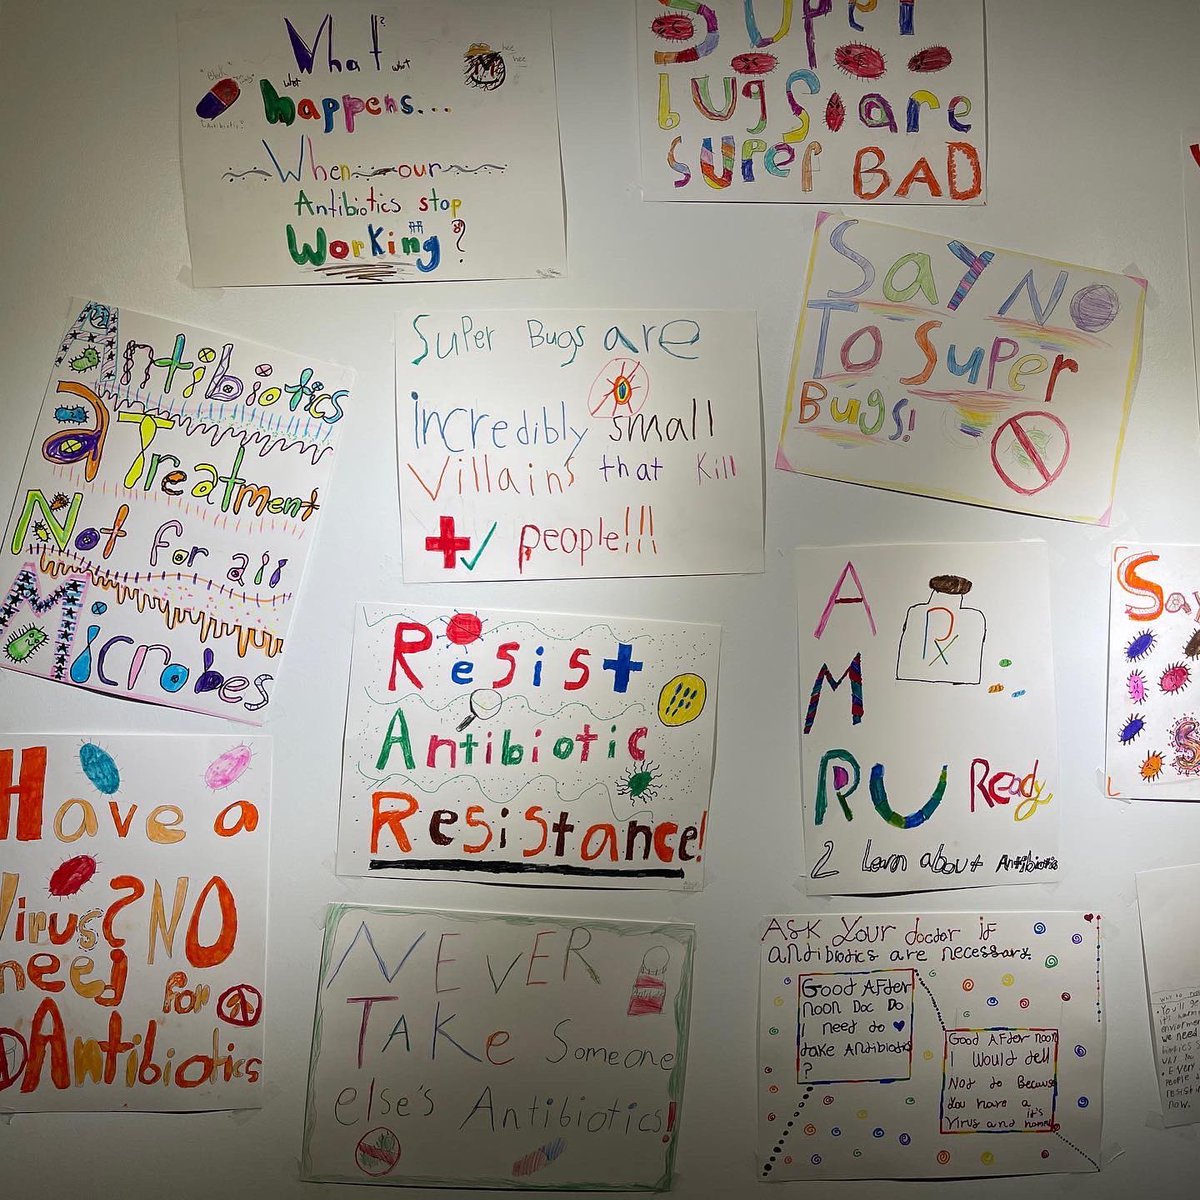 What?
what
what
happens...
When our
Antibiotics stop
Working?
hee
hee
Super
bugs are
super BAD
Say NO
To Super
Bugs!
Antibiotics
a Treatment
Not for all
Microbes
Super Bugs are
incredibly small
Villains that kill
people!!!
Resist
Antibiotic
Resistance!
A
M
R
Rx
R U Ready
2 Learn about Antibiotics
Say
S
Have a
Virus? NO
need for
Antibiotics
NEVER
Take Someone
else's Antibiotics!
Ask Your doctor if
antibiotics are necessary.
Good After
noon Doc Do
I need to
take Antibiotic
?
Good After noon
I Would tell
Not to Because
You have a
Virus and
it's
You'll
we need
Every
people
resist
now.